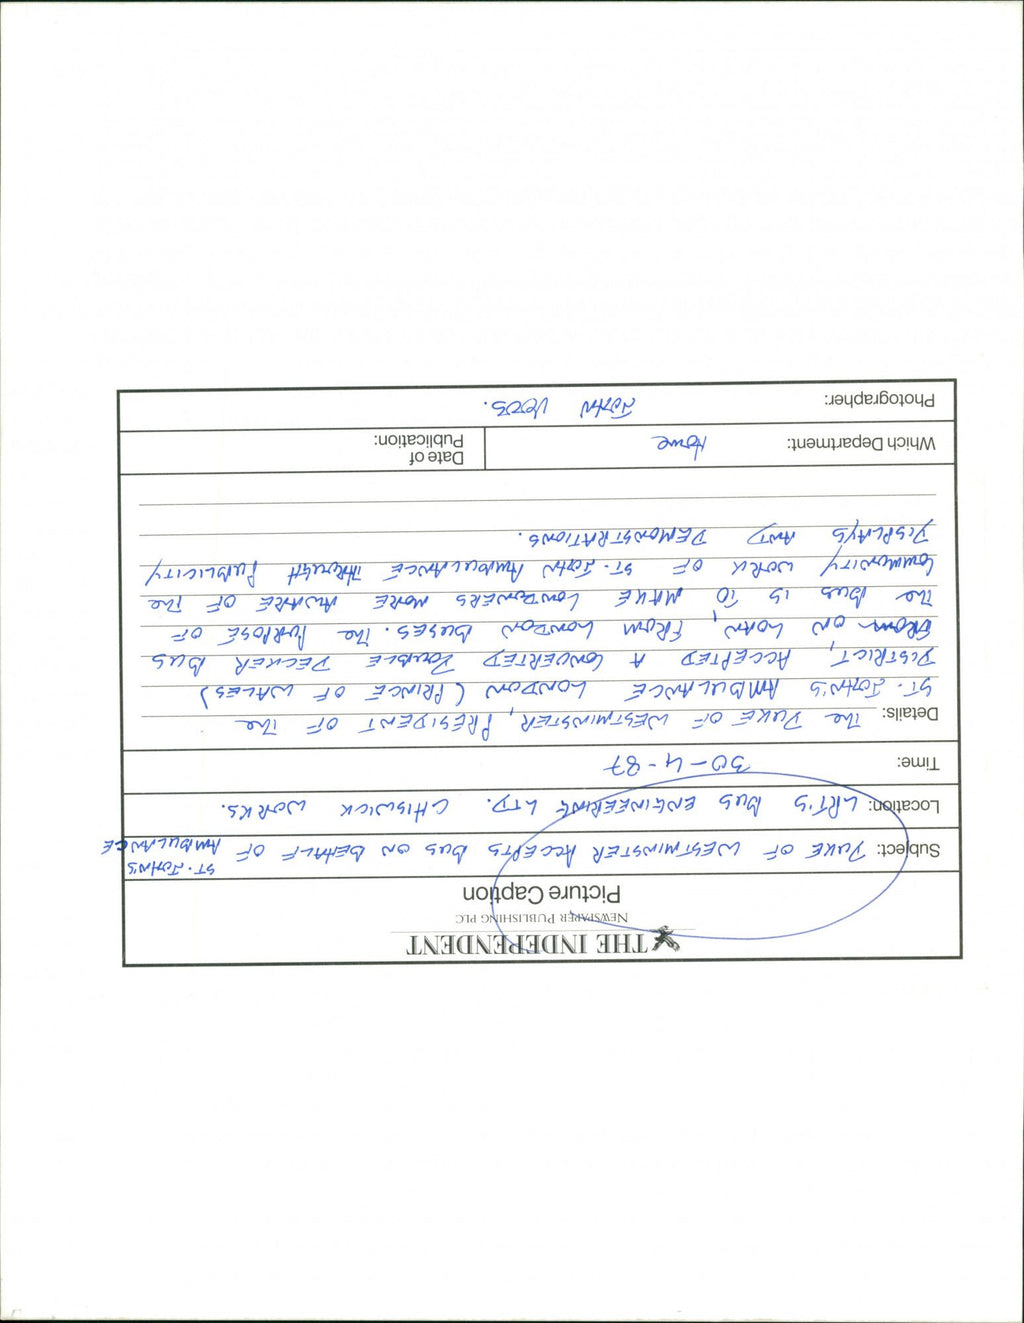 THE INDEPENDENT
NEWSPAPER PUBLISHING PLC
Picture Caption
Subject: DUKE OF WESTMINSTER ACCEPTS BUS ON BEHALF OF ST. JOHN'S AMBULANCE
Location: LRT'S BUS ENGINEERING LTD. CHISWICK WORKS.
Time: 30-4-87
Details: THE DUKE OF WESTMINSTER, PRESIDENT OF THE
ST. JOHN'S AMBULANCE LONDON (PRINCE OF WALES)
DISTRICT, ACCEPTED A CONVERTED DOUBLE DECKER BUS
FROM ON LOAN, FROM LONDON BUSES. THE PURPOSE OF
THE BUS IS TO MAKE LONDONERS MORE AWARE OF THE
COMMUNITY WORK OF ST. JOHN AMBULANCE THROUGH PUBLICITY
DISPLAYS AND DEMONSTRATIONS.
Which Department: Home
Date of
Publication:
Photographer: JOHN VOOS.